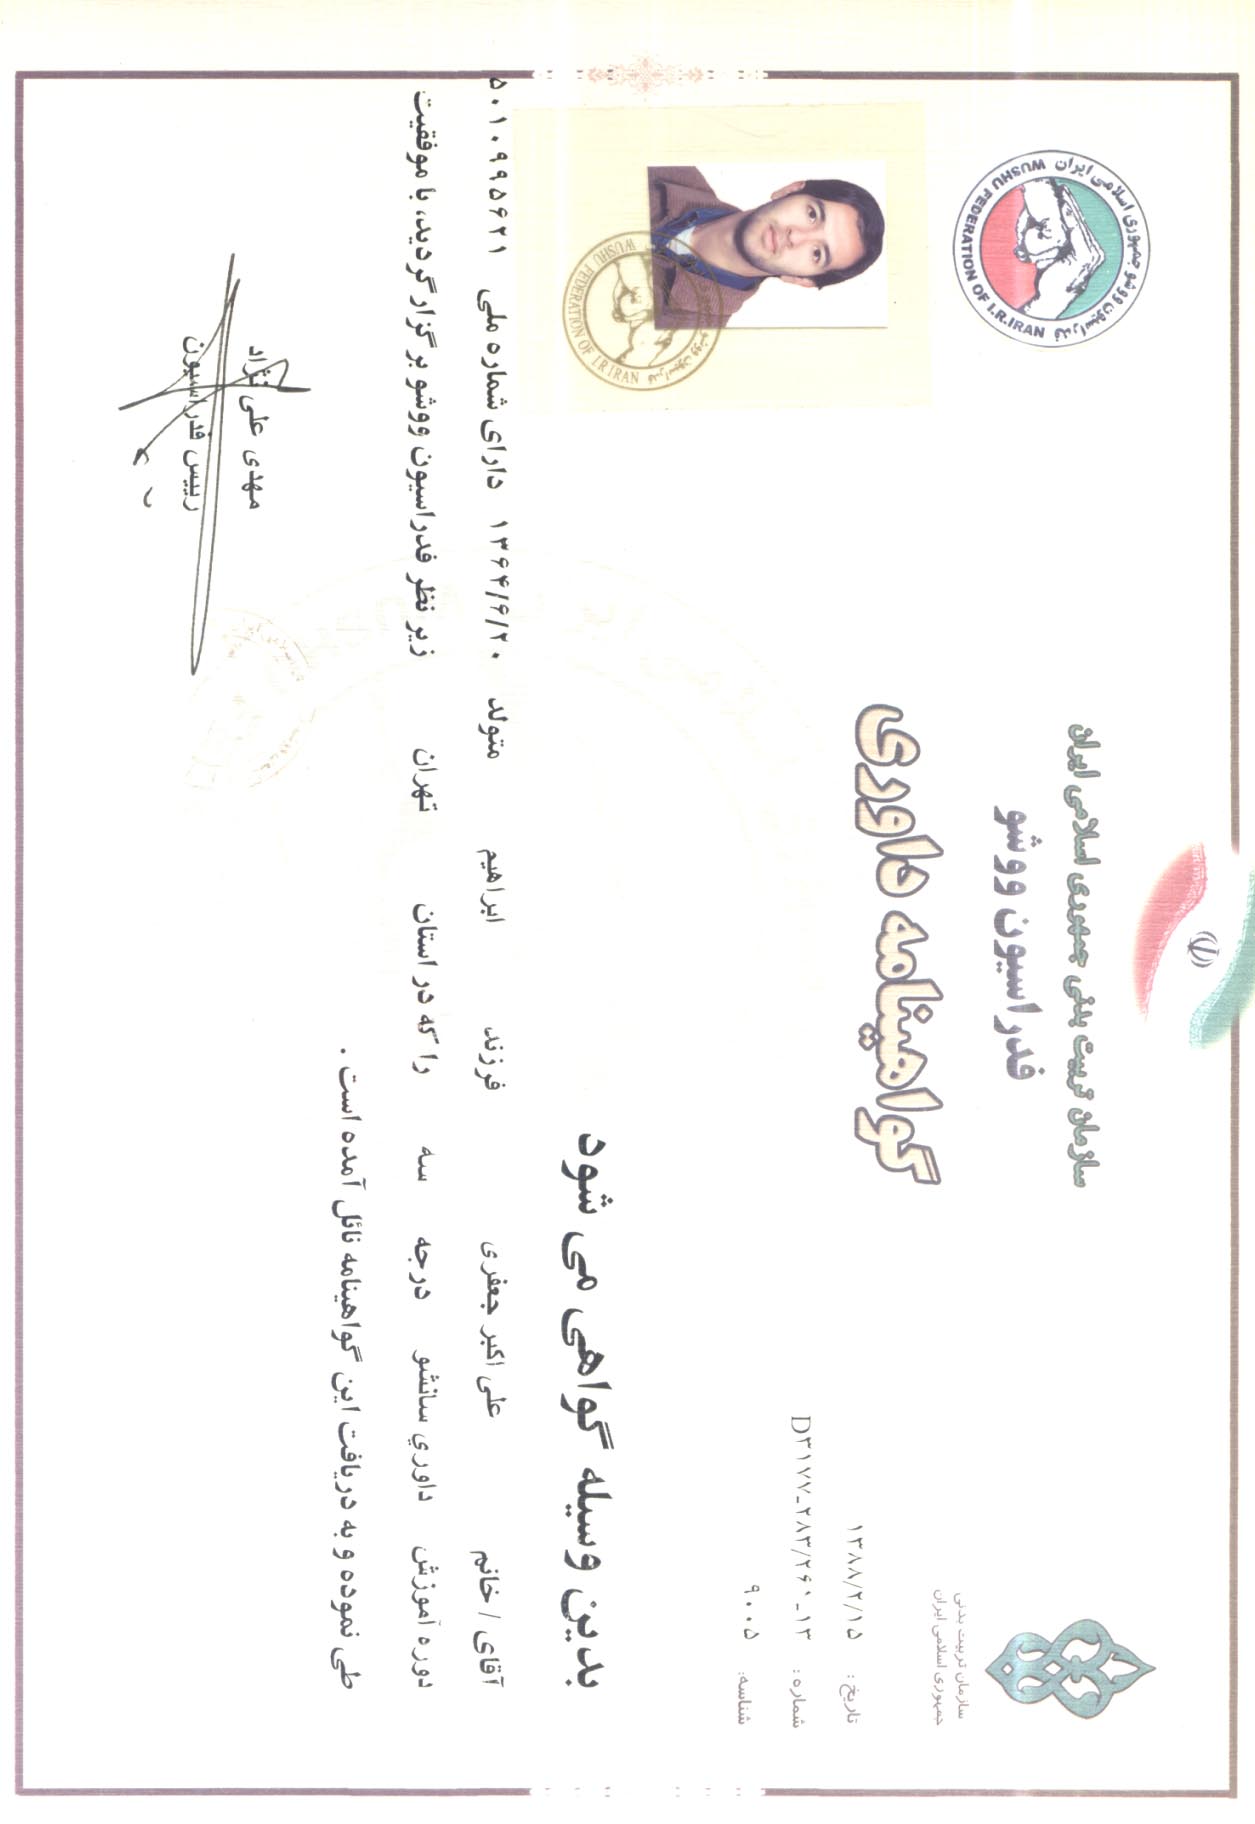 سازمان تربیت بدنی جمهوری اسلامی ایران
فدراسیون ووشو
گواهینامه داوری
فدراسیون ووشو جمهوری اسلامی ایران
WUSHU FEDERATION OF I.R.IRAN
سازمان تربیت بدنی
جمهوری اسلامی ایران
تاریخ : ۱۳۸۸/۲/۱۵
شماره : D۳۱۷۷-۲۸۳/۲۶۱-۱۳
شناسه: ۹۰۰۵
WUSHU FEDERATION OF I.R.IRAN
بدین وسیله گواهی می شود
آقای / خانم علی اکبر جعفری فرزند ابراهیم متولد ۱۳۶۴/۶/۲۰ دارای شماره ملی ۵۰۱۰۹۹۵۶۲۱
دوره آموزش داوري سانشو درجه سه را که در استان تهران زیر نظر فدراسیون ووشو برگزار گردید، با موفقیت
طی نموده و به دریافت این گواهینامه نائل آمده است .
مهدی علی نژاد
رییس فدراسیون